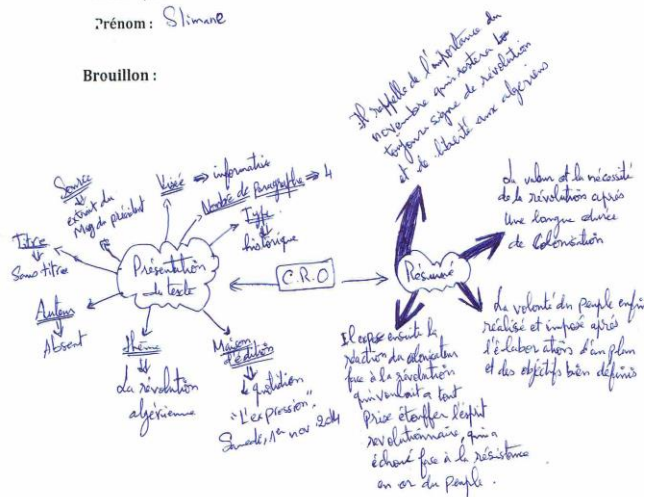 Prénom : Slimane
Brouillon :
Il rappelle de l'importance du
novembre qui restera
toujours signe de révolution
et de liberté aux algériens
La valeur et la nécessité
de la révolution après
Une longue durée
de Colonisation
La volonté du Peuple enfin
réalisé et imposé après
l'élaborations d'un plan
et des objectifs bien définis
Il expose ensuite la
réaction du
face à la révolution
qui voulait a tout
Prix étouffer l'esprit
revolutionnaire, qui a
échoué face à la résistance
en or du Peuple.
Résumé
C.R.O
Présentation
de texte
Source
extrait du
Msg du président
Visée ⇒ informative
Nombre de Paragraphe ⇒ 4
Type
historique
Titre
Sans titre
Auteur
Absent
thème
La révolution
algérienne
Maison
d'édition
quotidien
"L'expression"
Samedi, 1er nov 2014